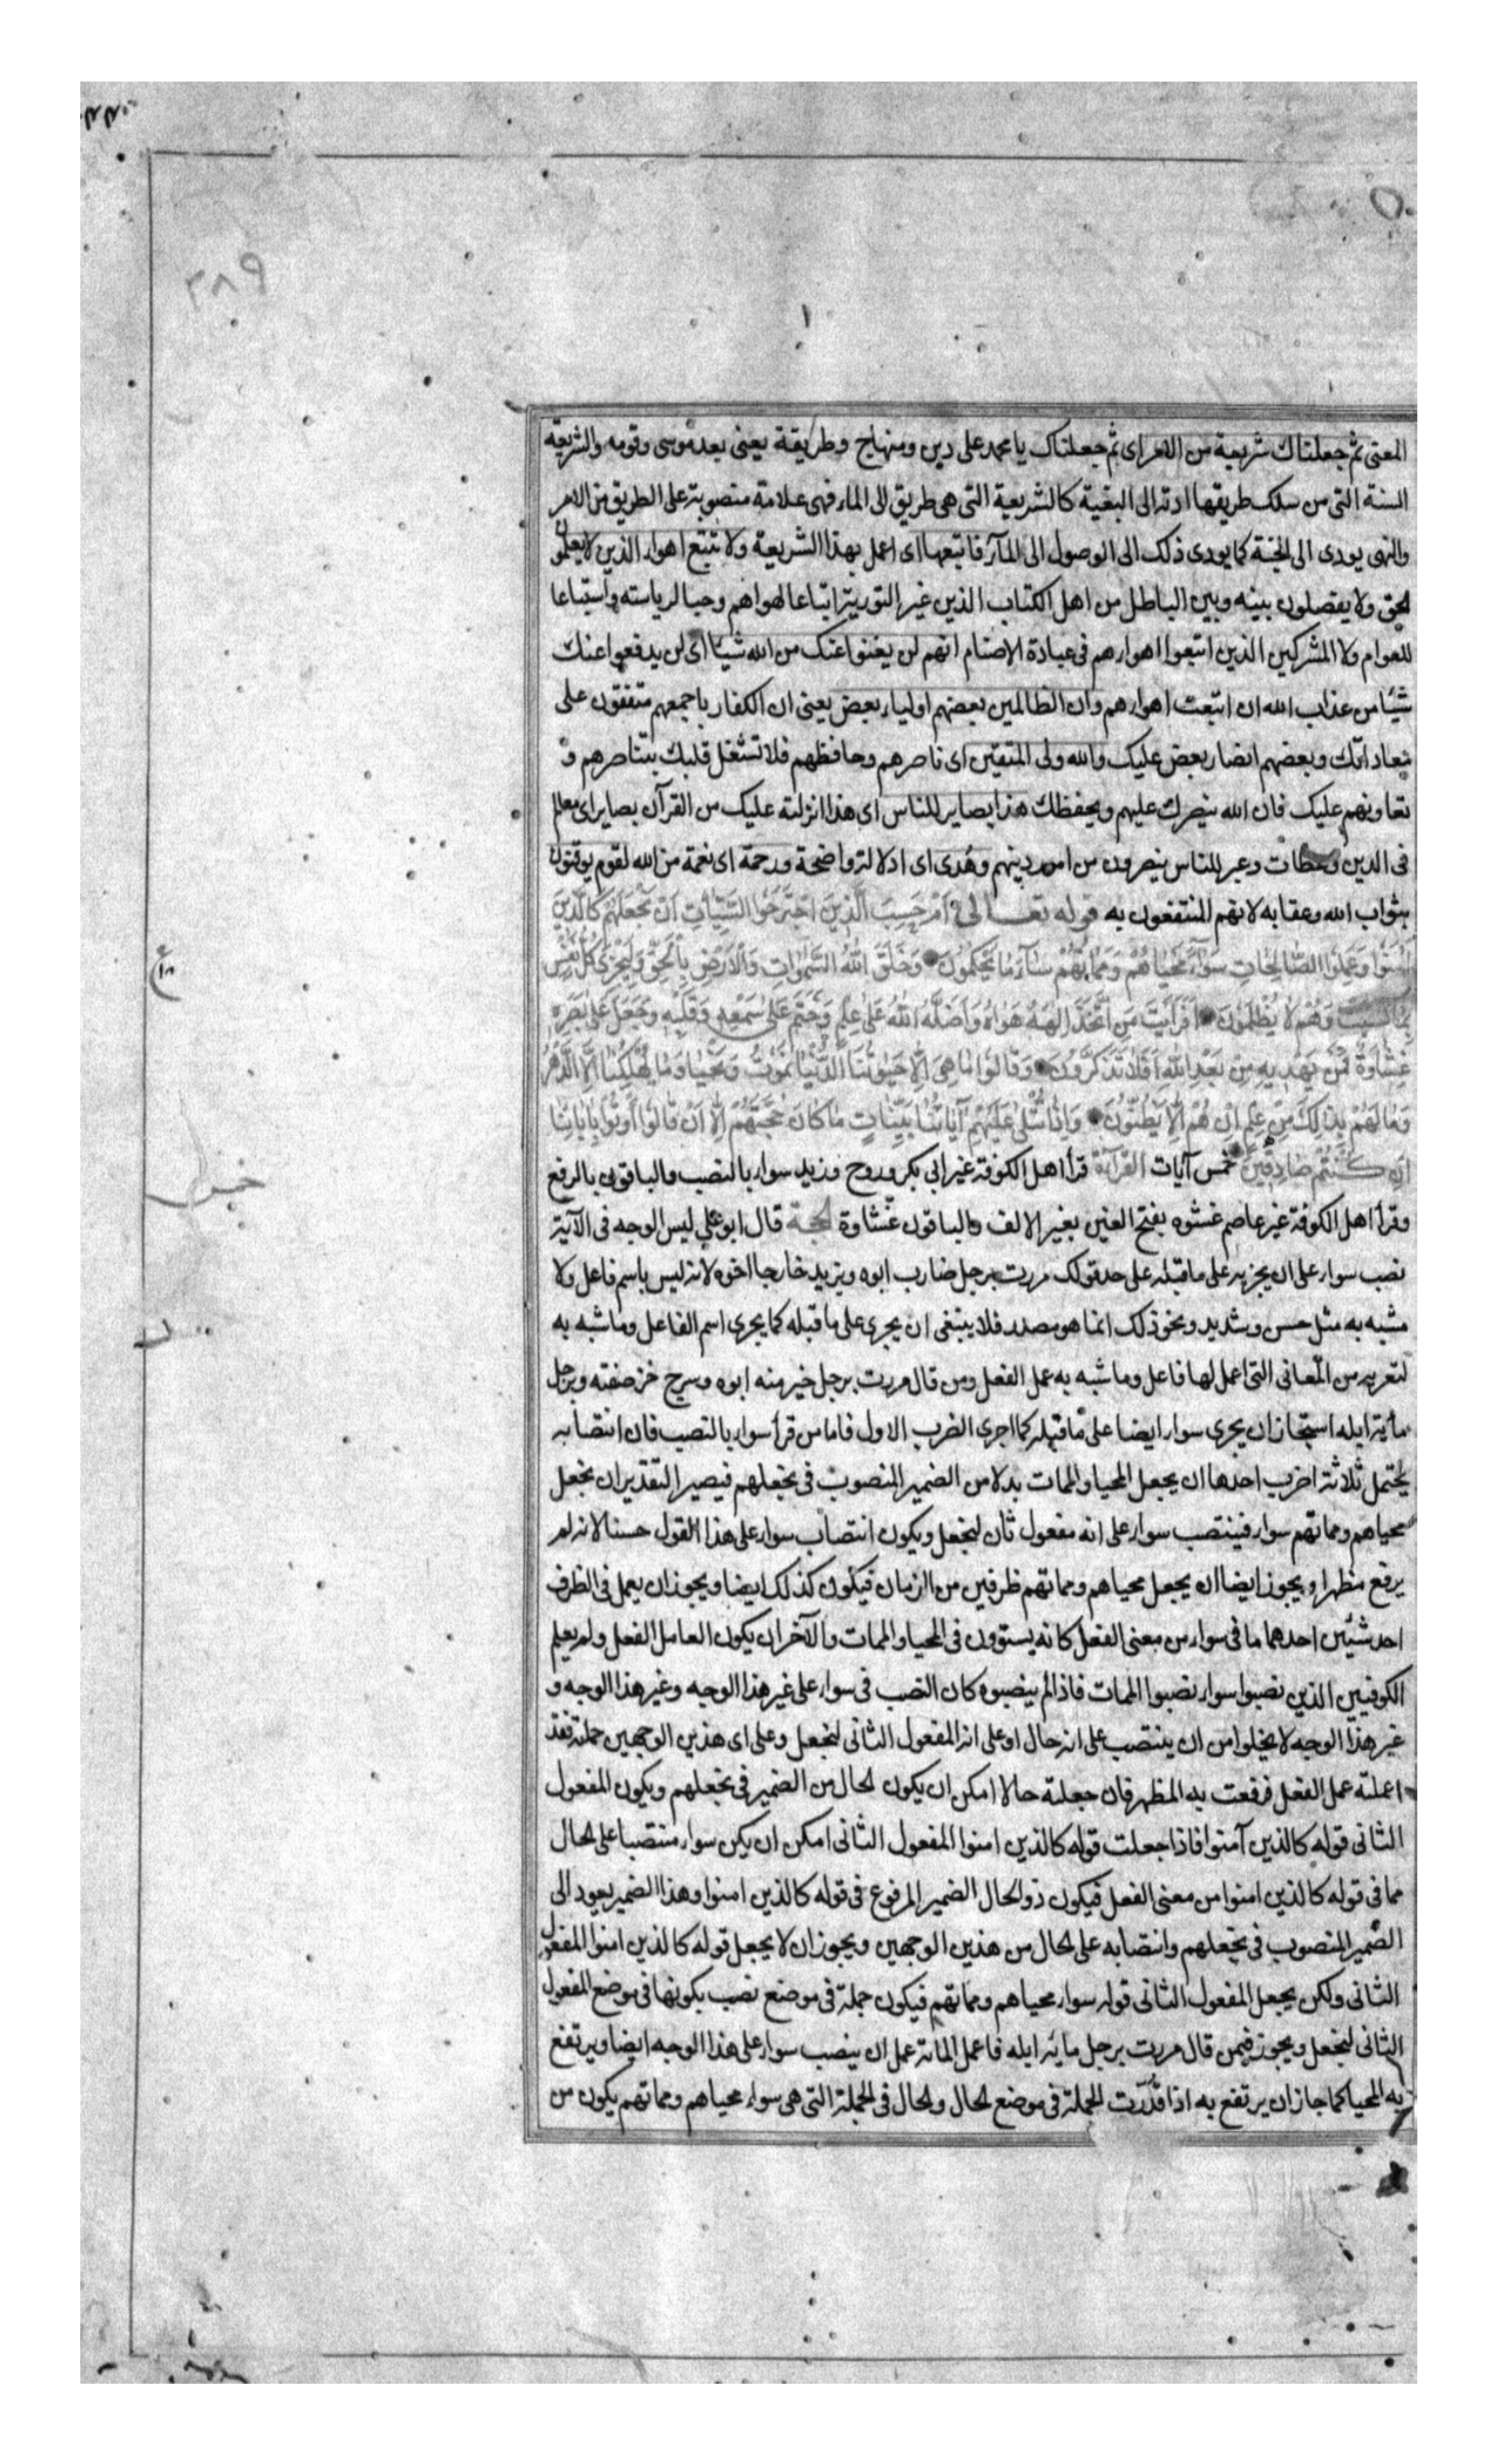 ٣٨٩
المعنى ثم جعلناك شريعة من الامر اى ثم جعلناك يا محمد على دين ومنهاج وطريقة يعنى بعد موسى وقومه والشريعة
السنة التى من سلك طريقها ادته الى البغية كالشريعة التى هى طريق الى الماء فهى علامة منصوبة على الطريق من الامر
والنهى يودى الى الجنة كما يودى ذلك الى الوصول الى المآء فاتبعها اى اعمل بهذا الشريعة ولا تتبع اهواء الذين لا يعلمون
الحق ولا يفصلون بينه وبين الباطل من اهل الكتاب الذين غير التورية اتباعا لهواهم وحبا لرياسته واستتباعا
للعوام ولا المشركين الذين اتبعوا اهواءهم فى عبادة الاصنام انهم لن يغنوا عنك من الله شيئا اى لن يدفعوا عنك
شيئا من عذاب الله ان اتبعت اهواءهم وان الظالمين بعضهم اولياء بعض يعنى ان الكفار باجمعهم متفقون على
معاداتك وبعضهم انصار بعض عليك والله ولى المتقين اى ناصرهم وحافظهم فلا تشغل قلبك بتناصرهم و
تعاونهم عليك فان الله ينصرك عليهم ويحفظك هذا بصاير للناس اى هذا انزلته عليك من القرآن بصاير اى معالم
فى الدين وعظات وعبر للناس يبصرون من امور دينهم وهدى اى ادلالة واضحة ورحمة اى نعمة من الله لقوم يوقنون
بثواب الله وعقابه لانهم المنتفعون به قوله تعالى اَمْ حَسِبَ الَّذِينَ اجْتَرَحُوا السَّيِّئَاتِ اَنْ نَجْعَلَهُمْ كَالَّذِينَ
آمَنُوا وَعَمِلُوا الصَّالِحَاتِ سَوَآءً مَحْيَاهُمْ وَمَمَاتُهُمْ سَآءَ مَا يَحْكُمُونَ وَخَلَقَ اللهُ السَّمٰوَاتِ وَالْاَرْضَ بِالْحَقِّ وَلِتُجْزٰى كُلُّ نَفْسٍ
بِمَا كَسَبَتْ وَهُمْ لَا يُظْلَمُونَ اَفَرَاَيْتَ مَنِ اتَّخَذَ اِلٰهَهُ هَوٰاهُ وَاَضَلَّهُ اللهُ عَلٰى عِلْمٍ وَخَتَمَ عَلٰى سَمْعِهِ وَقَلْبِهِ وَجَعَلَ عَلٰى بَصَرِهِ
غِشَاوَةً فَمَنْ يَهْدِيهِ مِنْ بَعْدِ اللهِ اَفَلَا تَذَكَّرُونَ وَقَالُوا مَا هِىَ اِلَّا حَيٰوتُنَا الدُّنْيَا نَمُوتُ وَنَحْيَا وَمَا يُهْلِكُنَا اِلَّا الدَّهْرُ
وَمَا لَهُمْ بِذٰلِكَ مِنْ عِلْمٍ اِنْ هُمْ اِلَّا يَظُنُّونَ وَاِذَا تُتْلٰى عَلَيْهِمْ آيَاتُنَا بَيِّنَاتٍ مَا كَانَ حُجَّتَهُمْ اِلَّا اَنْ قَالُوا ائْتُوا بِآبَائِنَا
اِنْ كُنْتُمْ صَادِقِينَ خمس آيات القراءة قرأ اهل الكوفة غير ابى بكر وروح وزيد سواء بالنصب والباقون بالرفع
وقرأ اهل الكوفة غير عاصم غشوه بفتح الغين بغير الالف والباقون غشاوة الحجة قال ابو على ليس الوجه فى الآية
نصب سواء على ان يجريه على ما قبله على حد قولك مررت برجل ضارب ابوه وبزيد خارجا اخوه لانه ليس باسم فاعل ولا
مشبه به مثل حسن وشديد ونحو ذلك انما هو مصدر فلا ينبغى ان يجرى على ما قبله كما يجرى اسم الفاعل وما شبه به
لتعريه من المعانى التى اعمل لها فاعل وما شبه به عمل الفعل ومن قال مررت برجل خير منه ابوه وسرج خز صفته وبرجل
مأية ابله استجاز ان يجرى سواء ايضا على ما قبله كما اجرى الضرب الاول فاما من قرأ سواء بالنصب فان انتصابه
يحتمل ثلاثة اضرب احدها ان يجعل المحيا والممات بدلا من الضمير المنصوب فى نجعلهم فيصير التقدير ان نجعل
محياهم ومماتهم سواء فينتصب سواء على انه مفعول ثان لنجعل ويكون انتصاب سواء على هذا القول حسنا لانه لم
يرفع مظهرا ويجوز ايضا ان يجعل محياهم ومماتهم ظرفين من الزمان فيكون كذلك ايضا ويجوز ان يعمل فى الظرف
احد شيئين احدهما ما فى سواء من معنى الفعل كانه يستوون فى المحيا والممات والآخر ان يكون العامل الفعل ولم يعلم
الكوفيين الذين نصبوا سواء نصبوا الممات فاذا لم ينصبوه كان النصب فى سواء على غير هذا الوجه وغير هذا الوجه و
غير هذا الوجه لا يخلوا من ان ينتصب على انه حال او على انه المفعول الثانى لنجعل وعلى اى هذين الوجهين حملته فقد
اعملته عمل الفعل فرفعت به المظهر فان جعلته حالا امكن ان يكون الحال من الضمير فى نجعلهم ويكون المفعول
الثانى قوله كالذين آمنوا فاذا جعلت قوله كالذين امنوا المفعول الثانى امكن ان يكن سواء منتصبا على الحال
مما فى قوله كالذين امنوا من معنى الفعل فيكون ذو الحال الضمير المرفوع فى قوله كالذين امنوا وهذا الضمير يعود الى
الضمير المنصوب فى نجعلهم وانتصابه على الحال من هذين الوجهين ويجوز ان لا يجعل قوله كالذين امنوا المفعول
الثانى ولكن يجعل المفعول الثانى قوله سواء محياهم ومماتهم فيكون جملة فى موضع نصب بكونها فى موضع المفعول
الثانى لنجعل ويجوز فيمن قال مررت برجل مائه ابله فاعمل المائة عمل ان ينصب سواء على هذا الوجه ايضا ويرتفع
به المحيا كما جاز ان يرتفع به اذا قدّرت الجملة فى موضع الحال والحال فى الجملة التى هى سواء محياهم ومماتهم يكون من